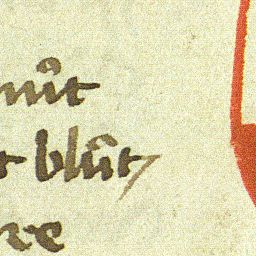 můt
t blůt/
re